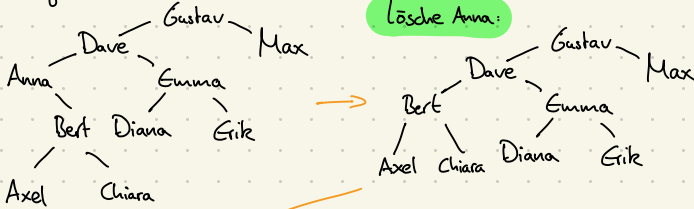 Gustav
Dave
Max
Anna
Emma
Bert
Diana
Erik
Axel
Chiara
Lösche Anna:
Gustav
Dave
Max
Bert
Emma
Axel
Chiara
Diana
Erik